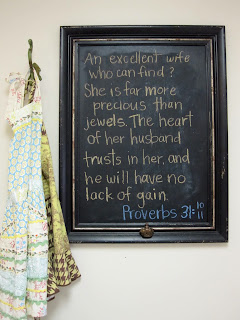 An excellent wife
who can find?
She is far more
precious than
jewels. The heart
of her husband
trusts in her, and
he will have no
lack of gain.
Proverbs 31:10
11